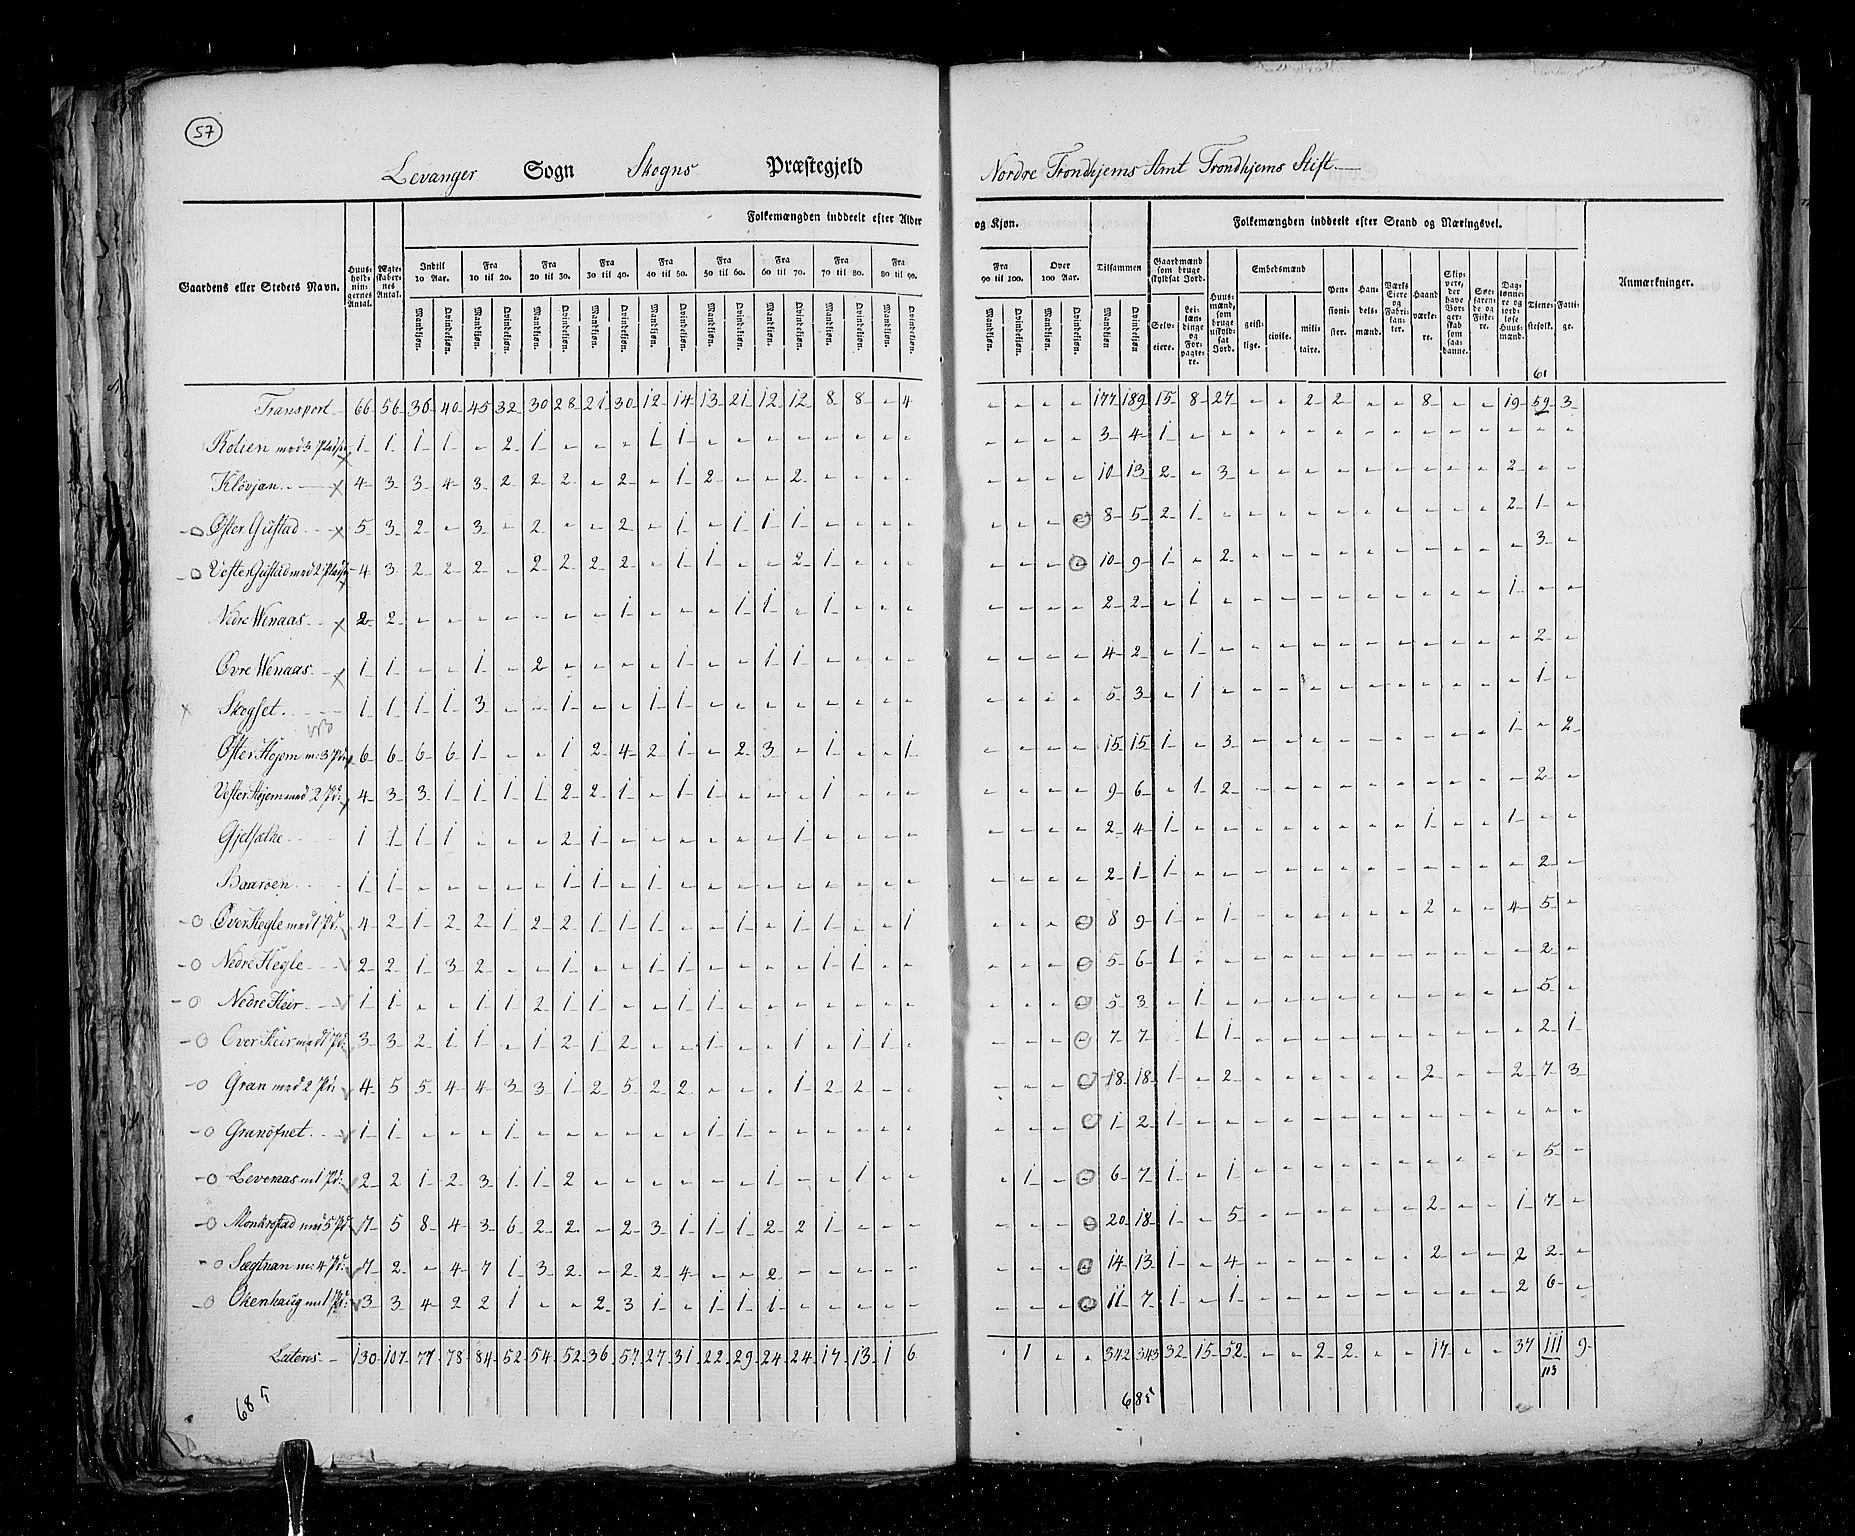 57
Levanger Sogn Skogns Præstegjeld
Nordre Trondhjems Amt Trondhjems Stift.
Gaardens eller Stedets Navn.
Huus-holdnin-gernes Antal.
Ægte-skaber-nes Antal.
Folkemængden inddeelt efter Alder
og Kjøn.
Folkemængden inddeelt efter Stand og Næringsvei.
Anmærkninger.
Indtil 10 Aar. Fra 10 til 20. Fra 20 til 30. Fra 30 til 40. Fra 40 til 50. Fra 50 til 60. Fra 60 til 70. Fra 70 til 80. Fra 80 til 90.
Fra 90 til 100. Over 100 Aar. Tilsammen
Gaardmænd som bruge skyldsat Jord. Embedsmænd
Mandkjøn. Qvindekjøn. Mandkjøn. Qvindekjøn. Mandkjøn. Qvindekjøn. Mandkjøn. Qvindekjøn. Mandkjøn. Qvindekjøn. Mandkjøn. Qvindekjøn. Mandkjøn. Qvindekjøn. Mandkjøn. Qvindekjøn. Mandkjøn. Qvindekjøn.
Mandkjøn. Qvindekjøn. Mandkjøn. Qvindekjøn. Mandkjøn. Qvindekjøn.
Selv-eiere. Lei-læn-dinge og For-pagte-re. Huus-mænd, som bruge uskyld-sat Jord. geist-lige. civile. mili-taire. Pen-sioni-ster. Han-dels-mænd. Værks Eiere og Fabri-kan-ter. Haand værke-re. Skip-pere, der have Bor-ger-skab som saa-danne. Søe-faren-de og Fiske-re. Dag-lønne-re og jord-løse Huus-mænd. Tiene-stefolk. Fatti-ge.
61
Transport 66 56 36 40 45 32 30 28 21 30 12 14 13 21 12 12 8 8 - 4 - - - - 177 189 15 8 27 - - 2 2 - - 8 - - 19 59 3
1 1 1 1 - 2 1 - - - 1 1 - - - - - - - - - - - - 3 4 1 - - - - - - - - - - - - - -
Kløvjan 4 3 3 4 3 2 2 2 - 2 - 1 2 - - 2 - - - - - - - - 10 13 2 - 3 - - - - - - - - - 2 - -
Øster Gustad 5 3 2 - 3 - 2 - - 2 - 1 - 1 1 1 - - - - - - - - 8 5 2 1 - - - - - - - - - - 2 1 -
Vester Gustad med 2 4 3 2 2 2 - 2 2 2 2 - 1 1 - - 2 1 - - - - - - - 10 9 1 - 2 - - - - - - - - - - 3 -
Nedre Wenaas 2 2 - - - - - - - 1 - - - 1 1 - 1 - - - - - - - 2 2 - 1 - - - - - - - - - - 1 - -
Øvre Wenaas 1 1 - - 1 - 2 - - - - 1 - - 1 1 - - - - - - - - 4 2 - 1 - - - - - - - - - - - 2 -
Skogset 1 1 1 1 3 - - 1 - - 1 1 - - - - - - - - - - - - 5 3 - 1 - - - - - - - - - - - 1 -
Øster Hojem m 3 6 6 6 6 1 - - 1 2 4 2 1 - 2 3 - 1 - - 1 - - - - 15 15 1 - 3 - - - - - - - - - 1 - 2
Vester Hojem med 2 Pd: 4 3 3 1 1 1 1 2 2 1 - 1 1 - - - 1 - - - - - - - 9 6 - 1 2 - - - - - - - - - - 2 -
1 1 1 1 - - - 2 1 - - - - - - 1 - - - - - - - - 2 4 1 - - - - - - - - 1 - - 1 - -
Baaroen 1 1 - - - - - 1 1 - 1 - - - - - - - - - - - - - 2 1 1 - - - - - - - - - - - - 2 -
Øver Hegle med 1 Pd: 4 2 1 2 2 1 2 2 1 1 1 - - 1 - 1 1 - - 1 - - - - 8 9 1 - 1 - - - - - - 2 - - 4 5 -
Nedre Hegle 2 2 1 3 2 - - 1 - - 1 1 - - - - 1 1 - - - - - - 5 6 1 - - - - - - - - - - - - 2 -
Nedre Heir 1 1 - - 1 1 2 1 1 - - 1 1 - - - - - - - - - - - 5 3 - 1 - - - - - - - - - - - 5 -
Over Heir med 1 Pd: 3 3 2 1 1 - 1 2 1 2 - - 1 - - 1 - 1 1 - - - - - 7 7 - 1 1 - - - - - - - - - - 2 1
Gran med 2 Pd: 4 5 5 4 4 3 3 1 2 5 2 2 - - - 1 2 2 - - - - - - 18 18 1 - 2 - - - - - - 2 - - 2 7 3
Granofnet 1 1 - - - 1 - - - - - - 1 1 - - - - - - - - - - 1 2 1 - - - - - - - - - - - - - -
Levenaas m 1 Pd: 2 2 1 2 3 1 1 2 - - - - - - 1 - - 1 - - - 1 - - 6 7 1 - 1 - - - - - - - - - - 5 -
Monkrostad med 5 Pd 7 5 8 4 3 6 2 2 - 2 3 1 1 1 2 2 1 - - - - - - - 20 18 1 - 5 - - - - - - 2 - - 1 7 -
Sægtnan m: 4 Pd: 7 2 - 4 7 1 3 2 - 2 2 4 - - 2 - - - - - - - - - 14 13 1 - 4 - - - - - - 2 - - 2 2 -
Okenhaug m 1 Pd: 3 3 4 2 2 1 - - 2 3 1 - 1 1 1 - - - - - - - - - 11 7 1 - 1 - - - - - - - - - 2 6 -
Lateris 130 107 77 78 84 52 54 52 36 57 27 31 22 29 24 24 17 13 1 6 - 1 - - 342 343 32 15 52 - - 2 2 - - 17 - - 37 111 9
113
685
685